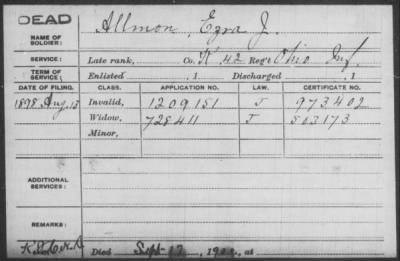 DEAD
NAME OF SOLDIER: Allmon, Ezra J.
SERVICE: Late rank, Co. K 42 Reg't Ohio Inf.
TERM OF SERVICE: Enlisted , 1 Discharged , 1
DATE OF FILING. CLASS. APPLICATION NO. LAW. CERTIFICATE NO.
1898 Aug. 13 Invalid, 1209151 J 973402
Widow, 728411 J 503173
Minor,
ADDITIONAL SERVICES:
REMARKS:
Died Sept 17, 19 , at